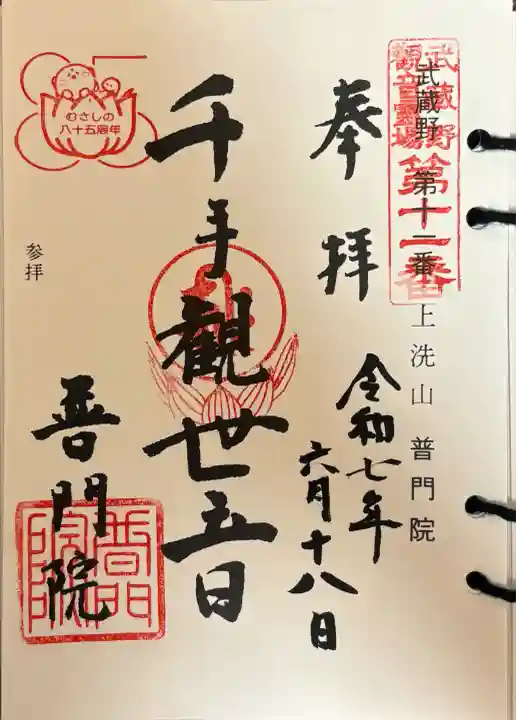 武蔵野 第十二番 上洗山 普門院
武蔵野
観音霊場
第十二番
奉拝
令和七年
六月十八日
千手観世音
普門院
参拝
むさしの
八十五周年